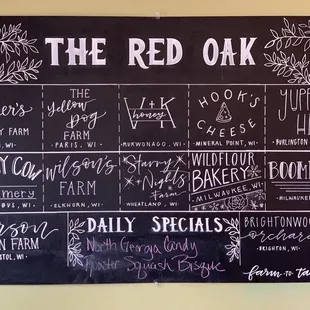 THE RED OAK
THE
Yellow
Dog
FARM
PARIS, WI
V+K
honey
MUKWONAGO, WI
HOOK'S
CHEESE
MINERAL POINT, WI
BURLINGTON
FARM
, WI
COW
Wilson's
FARM
ELKHORN, WI
Starry
Nights
Farm
WHEATLAND, WI
WILDFLOUR
BAKERY
MILWAUKEE, WI
MILWAUKEE
FARM
, WI
DAILY SPECIALS
North Georgia Candy
Roaster Squash Bisque
BRIGHTONWOO
orchard
BRIGHTON, WI
farm to ta